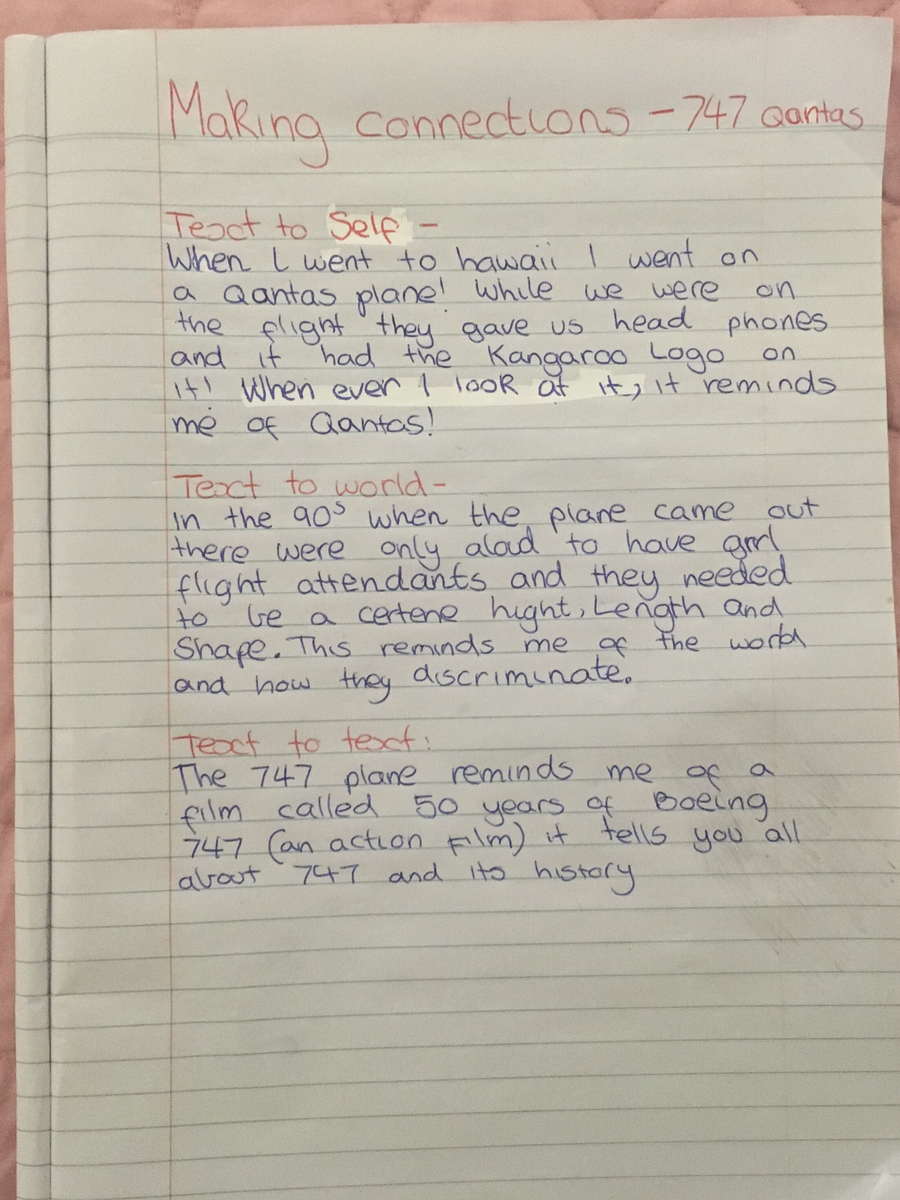 Making connections - 747 Qantas
Text to Self -
When I went to hawaii I went on
a Qantas plane! While we were on
the flight they gave us head phones
and it had the Kangaroo Logo on
it! When ever I look at it, it reminds
me of Qantas!
Text to world-
In the 90s when the plane came out
there were only aloud to have girl
flight attendants and they needed
to be a certene hight, Length and
Shape. This reminds me of the world
and how they discriminate.
Text to text:
The 747 plane reminds me of a
film called 50 years of Boeing
747 (an action film) it tells you all
about 747 and its history